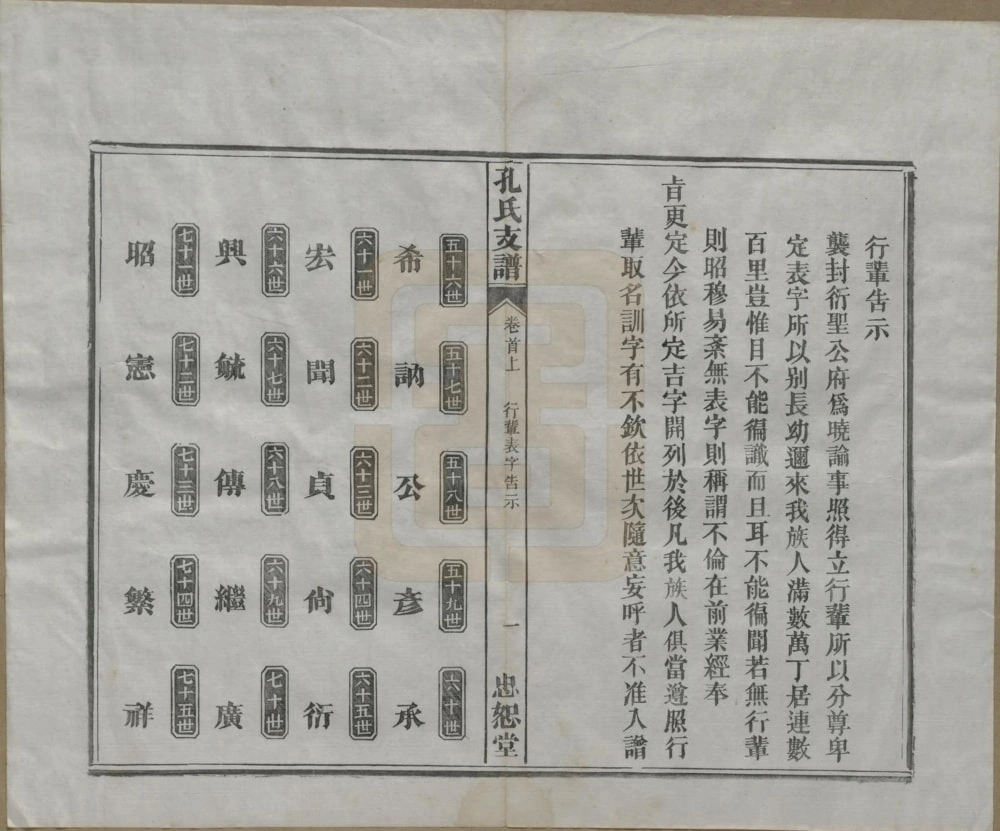 行輩告示
襲封衍聖公府爲曉諭事照得立行輩所以分尊卑
定表字所以别長幼邇來我族人滿數萬丁居連數
百里豈惟目不能徧識而且耳不能徧聞若無行輩
則昭穆易紊無表字則稱謂不倫在前業經奉
旨更定今依所定吉字開列於後凡我族人俱當遵照行
輩取名訓字有不欽依世次隨意妄呼者不准入譜
孔氏支譜
卷首上
行輩表字告示
一
忠恕堂
五十六世 五十七世 五十八世 五十九世 六十世
希 訥 公 彥 承
六十一世 六十二世 六十三世 六十四世 六十五世
宏 聞 貞 尙 衍
六十六世 六十七世 六十八世 六十九世 七十世
興 毓 傳 繼 廣
七十一世 七十二世 七十三世 七十四世 七十五世
昭 憲 慶 繁 祥